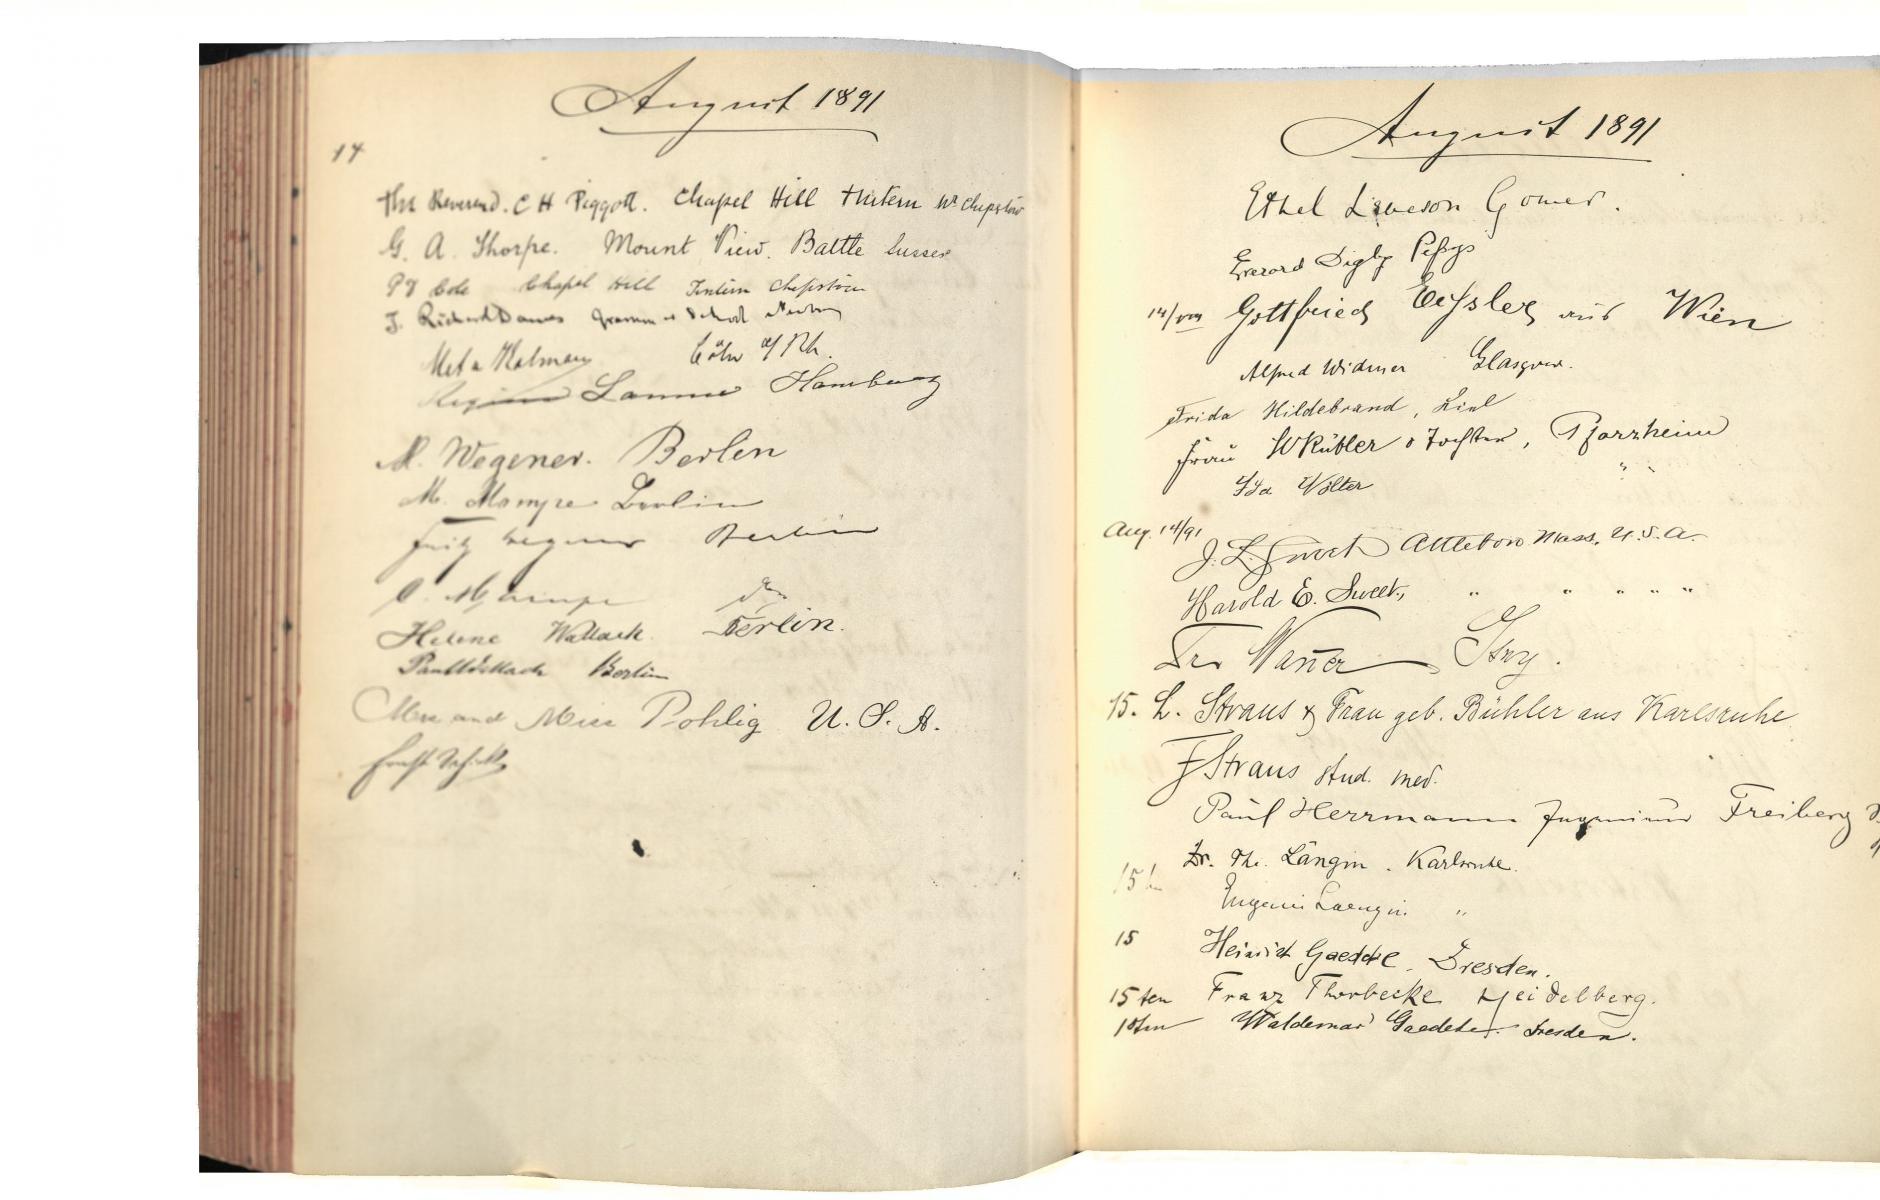 August 1891
14
The Reverend. C H Piggott. Chapel Hill Tintern Nr Chepstow
G. A. Thorpe. Mount View. Battle Sussex
Cole Chapel Hill Tintern Chepstow
J. Richard Dawes Grammar School
Meta Cöln a/Rh.
Hamburg
M. Wegener. Berlin
M. Mampe Berlin
Fritz Wegener Berlin
O. Mampe
Helene Wallach. Berlin.
Paul Wallach Berlin
Mrs and Miss Pohlig U. S. A.
August 1891
Ethel Leveson Gower.
Everard Digby Pepys
14/VIII Gottfried aus Wien
Alfred Widmer Glasgow.
Frida Hildebrand,
Frau W Kübler & Tochter, Pforzheim
Ida Wölter " "
Aug. 14/91
J. L. Sweet Attleboro Mass. U. S. A.
Harold E. Sweet, " " " " "
15. L. Straus & Frau geb. Bühler aus Karlsruhe
F Straus stud. med.
Paul Herrmann Ingenieur Freiberg
Dr. Th. Längin. Karlsruhe.
15
Eugenie Laengin. "
15 Heinrich Gaedeke. Dresden.
15ten Franz Thorbecke Heidelberg.
15ten Waldemar Gaedeke. Dresden.